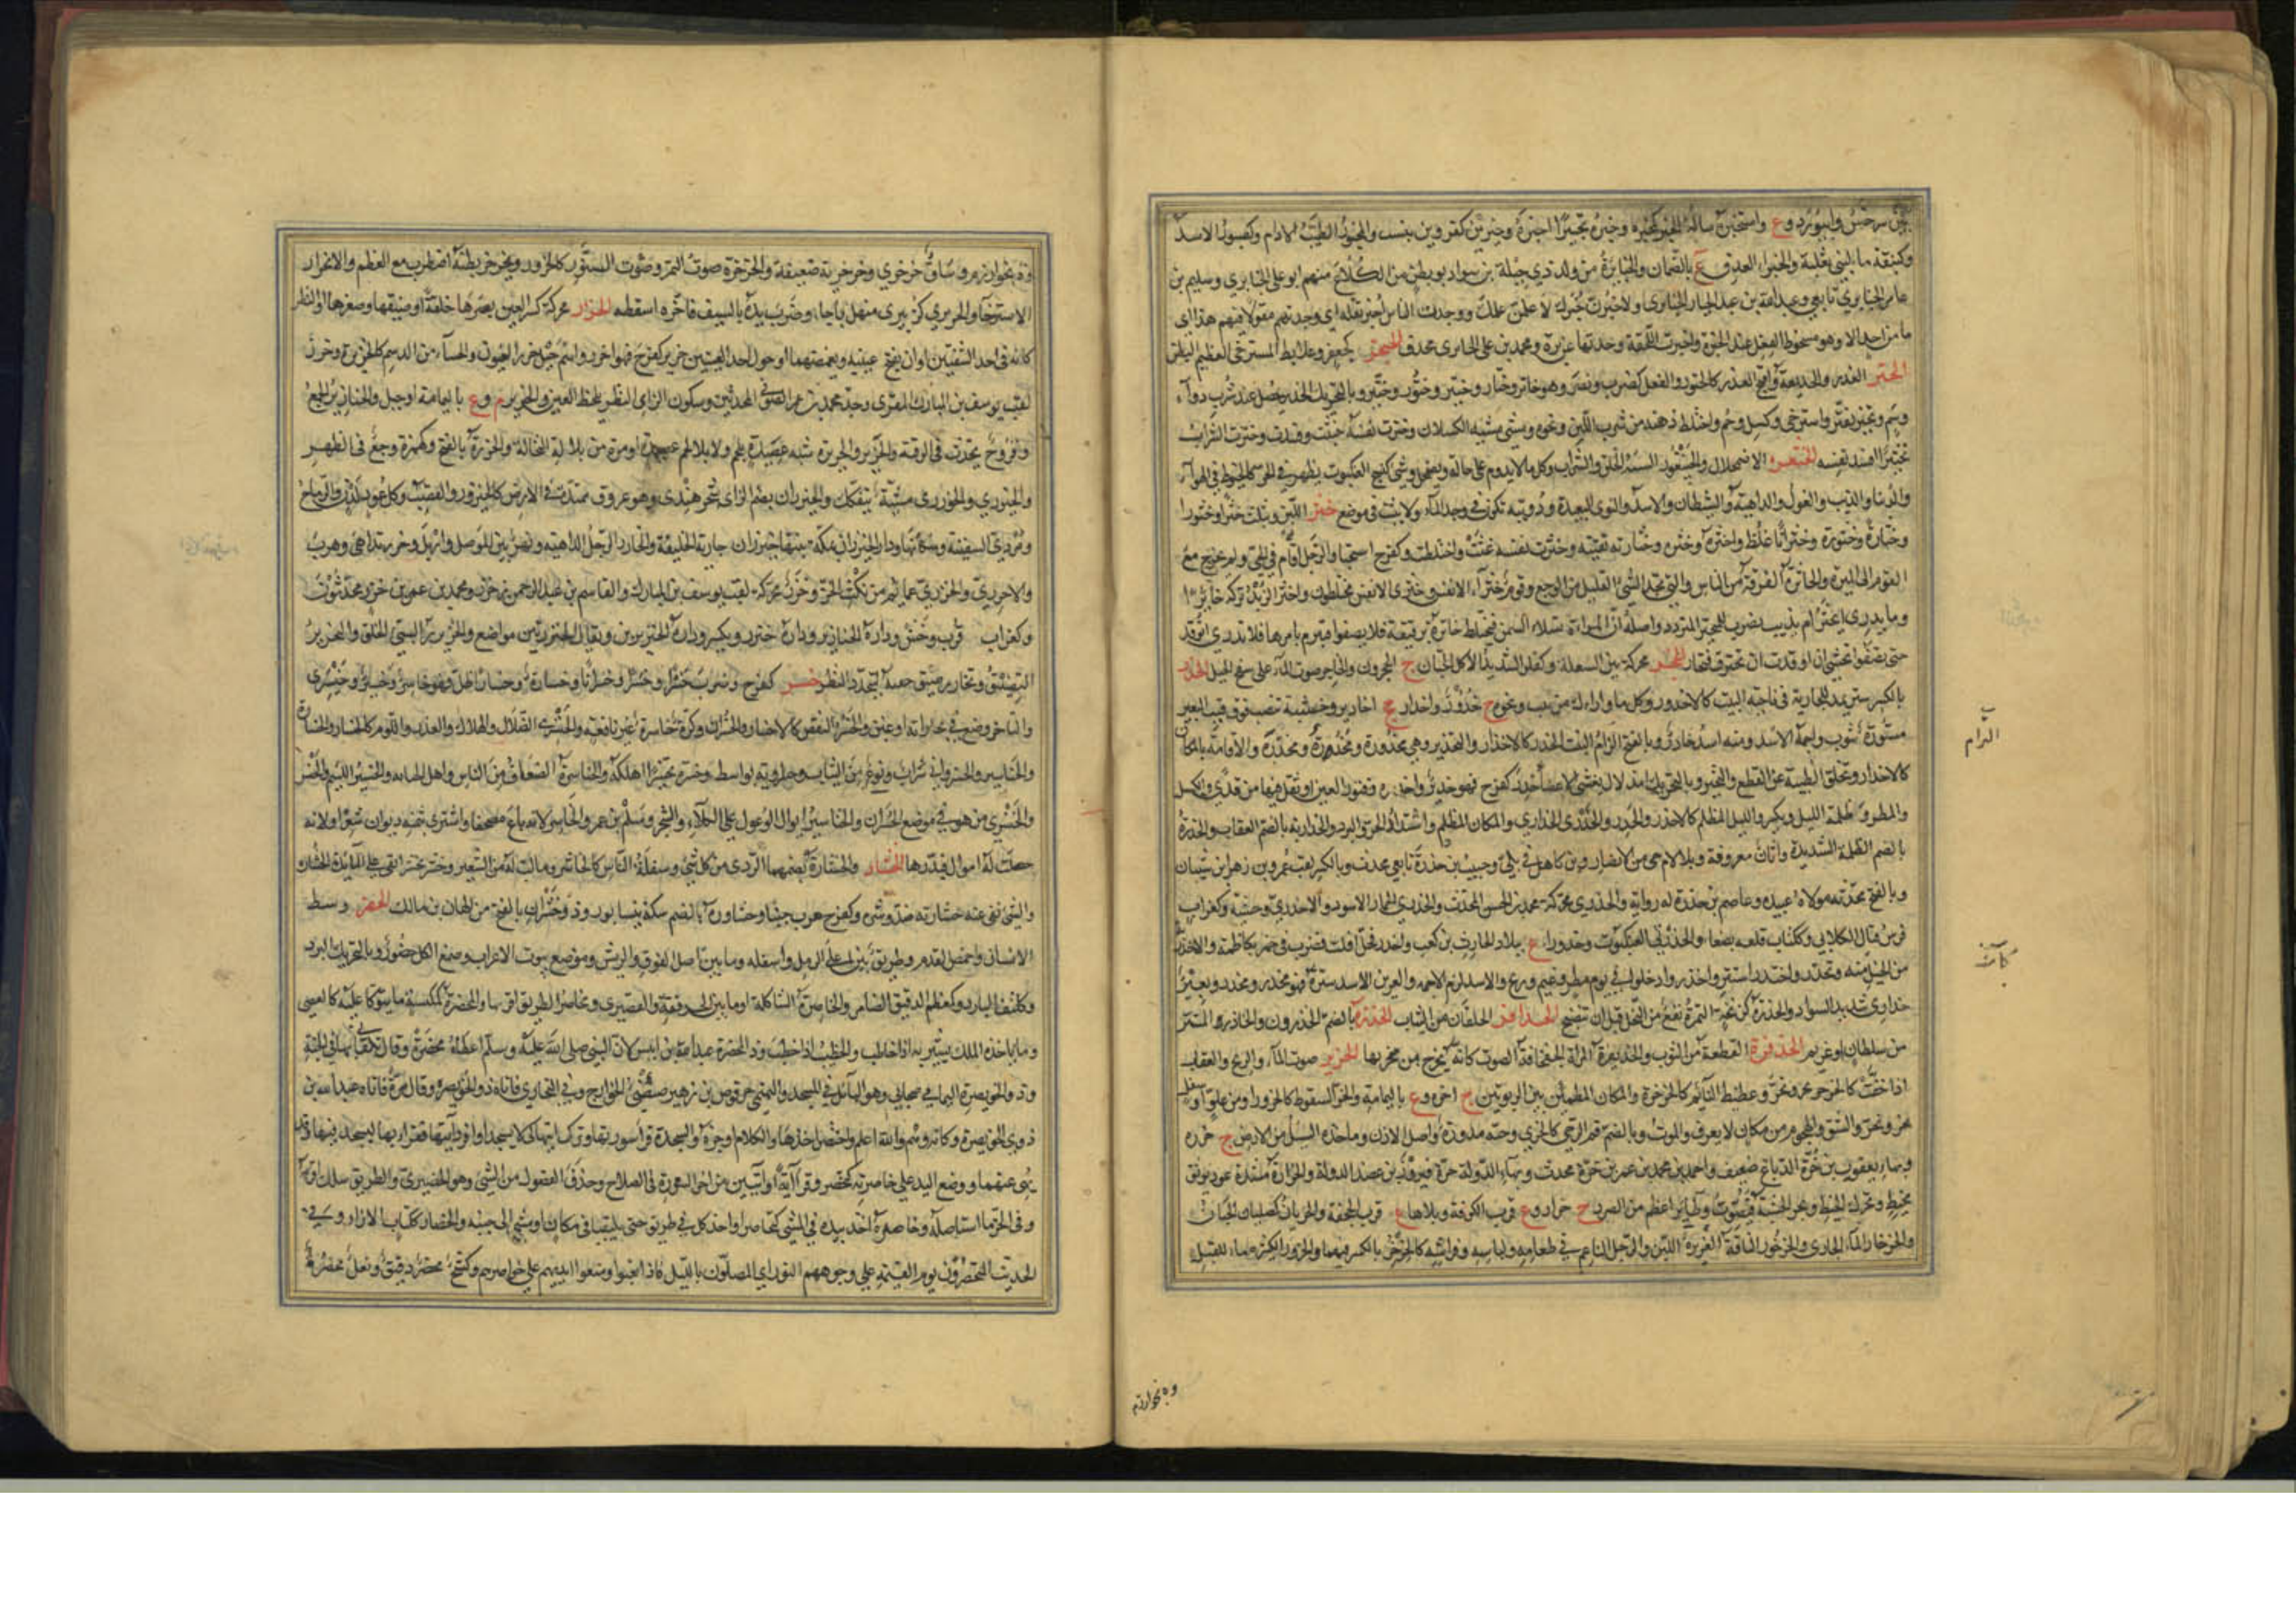 سرخس وابيورد وع واستخبره سأله الخبر كتخبره وخبره تخبيرا اخبره وخبرين كقزوين ببست والمخبور الطيب الادام وكصبور الاسد
وكنبقة ماء لبني ثعلبة والخبراء العدق ع بالصمان والخبايرة من ولد ذي جبلة بن سواد ابو بطن من الكلاع منهم ابو علي الخبايري وسليم بن
عامر الخبايري تابعي وعبد الله بن عبد الجبار الخبايري ولاخبرن خبرك لاعلمن علمك ووجدت الناس اخبر تقله اي وجدتهم مقولا فيهم هذا اي
ما من احد الا وهو مسخوط الفعل عند الخبرة واخبرت اللقحة وجدتها غزيرة ومحمد بن علي الخابري محدث الخبجر كجعفر وعلابط المسترخي العظيم البطن
الختر الغدر والخديعة او اقبح الغدر كالختور والفعل كضرب ونصر وهو خاتر وختار وختير وختور وختير وبالتحريك الخدر يحصل عند شرب دواء
وسم وتختر تفتر واسترخى وكسل وحم واختلط ذهنه من شرب اللبن ونحوه ومشى مشية الكسلان وخترت نفسه خبثت وفسدت وختره الشراب
تختيرا افسد نفسه الختعرة الاضمحلال والخيتعور السيئة الخلق والسراب وكل ما لا يدوم على حالة ويضمحل وشيء كنسج العنكبوت يظهر في الحر كالخيوط في الهواء
والدنيا والذئب والغول والداهية والشيطان والاسد والنوى البعيدة ودويبة تكون في وجه الماء ولا تثبت في موضع خثر اللبن ويثلث خثرا وخثورا
وخثارة وخثورة وخثرانا غلظ واخثره وخثره وخثارته بقيته وخثرت نفسه غثت واختلطت وكفرح استحيا والرجل اقام في الحي ولم يخرج مع
القوم الى الميرة والخاثرة الفرقة من الناس والتي تجد الشيء القليل من الوجع وقوم خثراء الانفس وخثرى الانفس مختلطون واخثر الزبد تركه خاثرا
وما يدري ايخثر ام يذيب يضرب للمتحير المتردد واصله ان المراة تسلأ السمن فيختلط خاثره برقيقه فلا يصفو فتبرم بامرها فلا تدري اتوقد
حتى يصفو وتخشى ان اوقدت ان يحترق فتحار الخجر محركة نتن السفلة وكفلز الشديد الاكل الجبان ج الخجرون والخاجر صوت الماء على سفح الجبل الخدر
بالكسر ستر يمد للجارية في ناحية البيت كالاخدور وكل ما واراك من بيت ونحوه ج خدور واخدار جج اخادير وخشبة تنصب فوق قتب البعير
مستورة بثوب واجمة الاسد ومنه اسد خادر وبالفتح الزام البنت الخدر كالاخدار والتخدير وهي مخدورة ومخدرة ومخدرة والاقامة بالمكان
كالاخدار وتخلف الظبية عن القطيع والتحير وبالتحريك امذلال يغشى الاعضاء خدر كفرح فهو خدر واخدره وفتور العين او ثقل فيها من قذى والكسل
والمطر وظلمة الليل ويكسر والليل المظلم كالاخدر والخدر والخدر والخداري والمكان المظلم واشتداد الحر والبرد والخدارية بالضم العقاب والخدرة
بالضم الظلمة الشديدة واتان معروفة وبلا لام حي من الانصار وبن كاهل في بلي وحبيب بن خدرة تابعي محدث وبالكسر لقب عمرو بن ذهل بن شيبان
وبالفتح محدثة مولاة عبيدة وعاصم بن خدرة له رواية والخدري محركة محمد بن الحسن المحدث والخدري الحمار الاسود والاخدري وحشيه وكغراب
فرس قتال الكلابي وككتاب قلعة بصنعاء والخدرنق العنكبوت وخدوراء ع ببلاد الحارث بن كعب واخدر فحل افلت فضرب في حمر بكاظمة والاخدرية
من الخيل منه وتخدر واختدر استتر واخدروا دخلوا في يوم مطر وغيم وريح والاسد لزم الاجمة والعرين الاسد ستره فهو مخدر ومخدر وبعير
خداري شديد السواد والخدرة كزنخة التمرة تقع من النخل قبل ان تنضج الخذافر الخلقان من الثياب الخذرة بالضم الخذروف والخاذر المستتر
من سلطان او غريم الخذفرة القطعة من الثوب والخذيفرة المراة الخفخافة الصوت كانه يخرج من منخريها الخرير صوت الماء والريح والعقاب
اذا حفت كالخرخر يخر ويخر وغطيط النائم كالخرخرة والمكان المطمئن بين الربوتين ج اخرة وع باليمامة والخر السقوط كالخرور او من علو الى سفل
يخر ويخر والشق والهجوم من مكان لا يعرف والموت وبالضم فم الرحى كالخري وحبة مدورة واصل الاذن وما خده السيل من الارض ج خررة
وبهاء يعقوب بن خرة الدباغ ضعيف واحمد بن محمد بن عمر بن خرة محدث وبهاء الدولة خرة فيروز بن عضد الدولة والخرارة مشددة عويد يوثق
بخيط ويحرك الخيط وتجر الخشبة فتصوت وطائر اعظم من الصرد ج خرار وع قرب الكوفة وبلا هاء ع قرب الجحفة والخريان كصليان الجبان
والخرخار الماء الجاري والخرخور الناقة الغزيرة اللبن والرجل الناعم في طعامه ولباسه وفراشه كالخرخر بالكسر فيهما والخرور الكثيرة ماء القبل
التزام
كآت
وة بخوارزم
وة بخوارزم وساق خرخري وخرخرية ضعيفة والخرخرة صوت النمر وصوت السنور كالخرور وتخرخر بطنه اضطرب مع العظم والانخرار
الاسترخاء والخريري كزبيري منهل باجا وضرب يده بالسيف فاخره اسقطه الخزر محركة كسر العين بصرها خلقة او ضيقها وصغرها او النظر
كانه في احد الشقين او ان يفتح عينيه ويغمضهما او حول احدى العينين خزر كفرح فهو اخزر واسم جيل خزر العيون والحساء من الدسم كالخزيرة وخزر
لقب يوسف بن المبارك المقرئ وجد محمد بن عمر الصوفي المحدثين وسكون الزاي النظر بلحظ العين والخنزير م وع باليمامة او جبل والخنازير الجمع
وقروح تحدث في الرقبة والخزير والخزيرة شبه عصيدة بلحم وبلا لحم عصيدة او مرقة من بلالة النخالة والخزرة بالفتح وكهمزة وجع في الظهر
والخيزرى والخوزرى مشية بتفكك والخيزران بضم الزاي شجر هندي وهو عروق ممتدة في الارض كالخيزور والقصب وكل عود لدن والرماح
ومردي السفينة وسكانها ودار الخيزران بمكة بنتها خيزران جارية الخليفة والخازر الرجل الداهية ونهر بين الموصل واربل وخزر تداهى وهرب
والاخزري والخزري عمائم من نكث الخز وخزر محركة لقب يوسف بن المبارك والقاسم بن عبد الرحمن بن خزر ومحمد بن عمر بن خزر محدثون
وكغراب قرب وخش ودارة الخنازير ودارة خنزر ويكسر ودارة الخنزيرين ويقال الخنزرتين مواضع والخزرز السيئ الخلق والتخزير
التضييق وتخازر ضيق جفنه ليحدد النظر خسر كفرح وضرب خسرا وخسرا وخسرانا وخسارة وخسارا ضل فهو خاسر وخسير وخيسرى
والتاجر وضع في تجارته او غبن والخسر النقص كالاخسار والخسران وكرة خاسرة غير نافعة والخنسرى الضلال والهلاك والغدر واللؤم كالخسار والخسارة
والخناسير والخسرواني شراب ونوع من الثياب وخسراوية بواسط وخسره تخسيرا اهلكه والخناسرة الضعاف من الناس واهل الخيانة والخنسير اللئيم والخنسر
والخنسري من هو في موضع الخسران والخناسير ابوال الوعول على الكلأ والشجر وسلم بن عمرو الخاسر لانه باع مصحفا واشترى بثمنه ديوان شعر او لانه
حصلت له اموال فبذرها الخشار والخشارة بضمهما الردي من كل شيء وسفلة الناس كالخاشر وما لا لب له من الشعير وخشر يخشر ابقى على المائدة الخشارة
والشيء نقى عنه خشارته ضد وشره وكفرح هرب جبنا وخشاورة بالضم سكة بنيسابور وذو خشران بالفتح من الهان بن مالك الخصر وسط
الانسان واخمص القدم وطريق بين اعلى الرمل واسفله وما بين اصل الفوق والريش وموضع بيوت الاعراب وجمع الكل خصور وبالتحريك البرد
وككتف البارد وكمعظم الدقيق الضامر والخاصرة الشاكلة او ما بين الحرقفة والقصيرى ومخاصر الطريق اقربها والمخصرة كمكنسة ما يتوكا عليه كالعصى
وما ياخذه الملك يشير به اذا خاطب والخطيب اذا خطب وذو المخصرة عبد الله بن انيس لان النبي صلى الله عليه وسلم اعطاه مخصرة وقال تلقاني بها في الجنة
وذو الخويصرة اليماني صحابي وهو البائل في المسجد والتميمي حرقوص بن زهير ضئضئ الخوارج وفي البخاري فاتاه ذو الخويصرة وقال مرة فاتاه عبد الله بن
ذي الخويصرة وكانه وهم والله اعلم واختصر اخذها والكلام اوجزه والسجدة قرا سورتها وترك ايتها كيلا يسجد او افرد ايتها فقرا بها ليسجد فيها وقد
نهي عنهما ووضع اليد على خاصرته كتخصر وقرا اية او ايتين من اخر السورة في الصلاة وحذف الفضول من الشيء وهو الخصيرى والطريق سلك اقربه
وفي الحز ما استاصله وخاصره اخذ بيده في المشي كتخاصر او اخذ كل في طريق حتى يلتقيا في مكان او مشى الى جنبه والخصار ككتاب الازار وفي
الحديث المختصرون يوم القيمة على وجوههم النور اي المصلون بالليل فاذا تعبوا وضعوا ايديهم على خواصرهم وكشح مخصر دقيق ونعل مخصرة